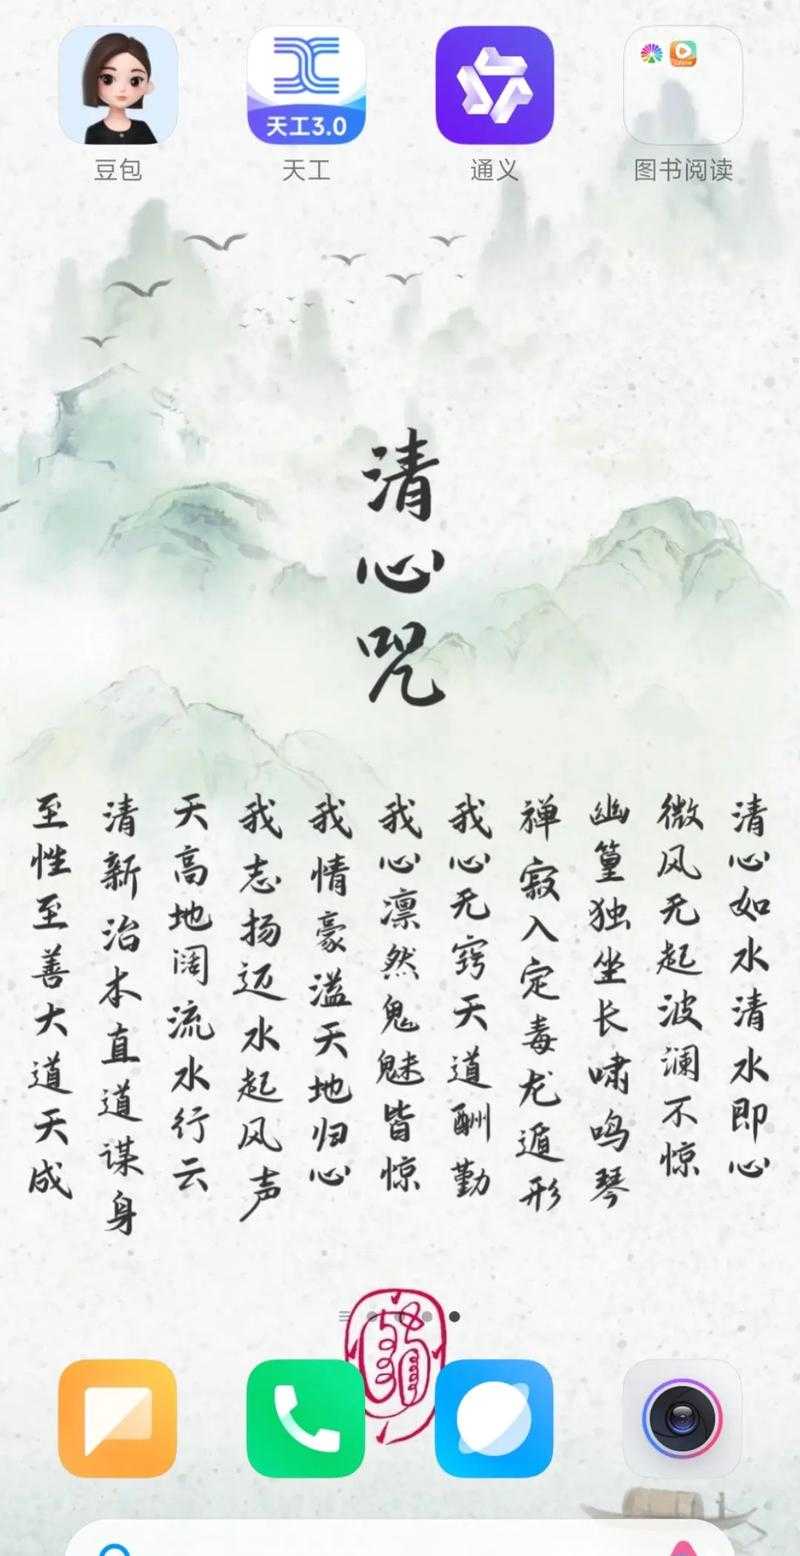 天工3.0
豆包
天工
通义
图书阅读
清心咒
清心如水清水即心
微风无起波澜不惊
幽篁独坐长啸鸣琴
禅寂入定毒龙遁形
我心无窍天道酬勤
我心凛然鬼魅皆惊
我情豪溢天地归心
我志扬迈水起风声
天高地阔流水行云
清新治本直道谋身
至性至善大道天成